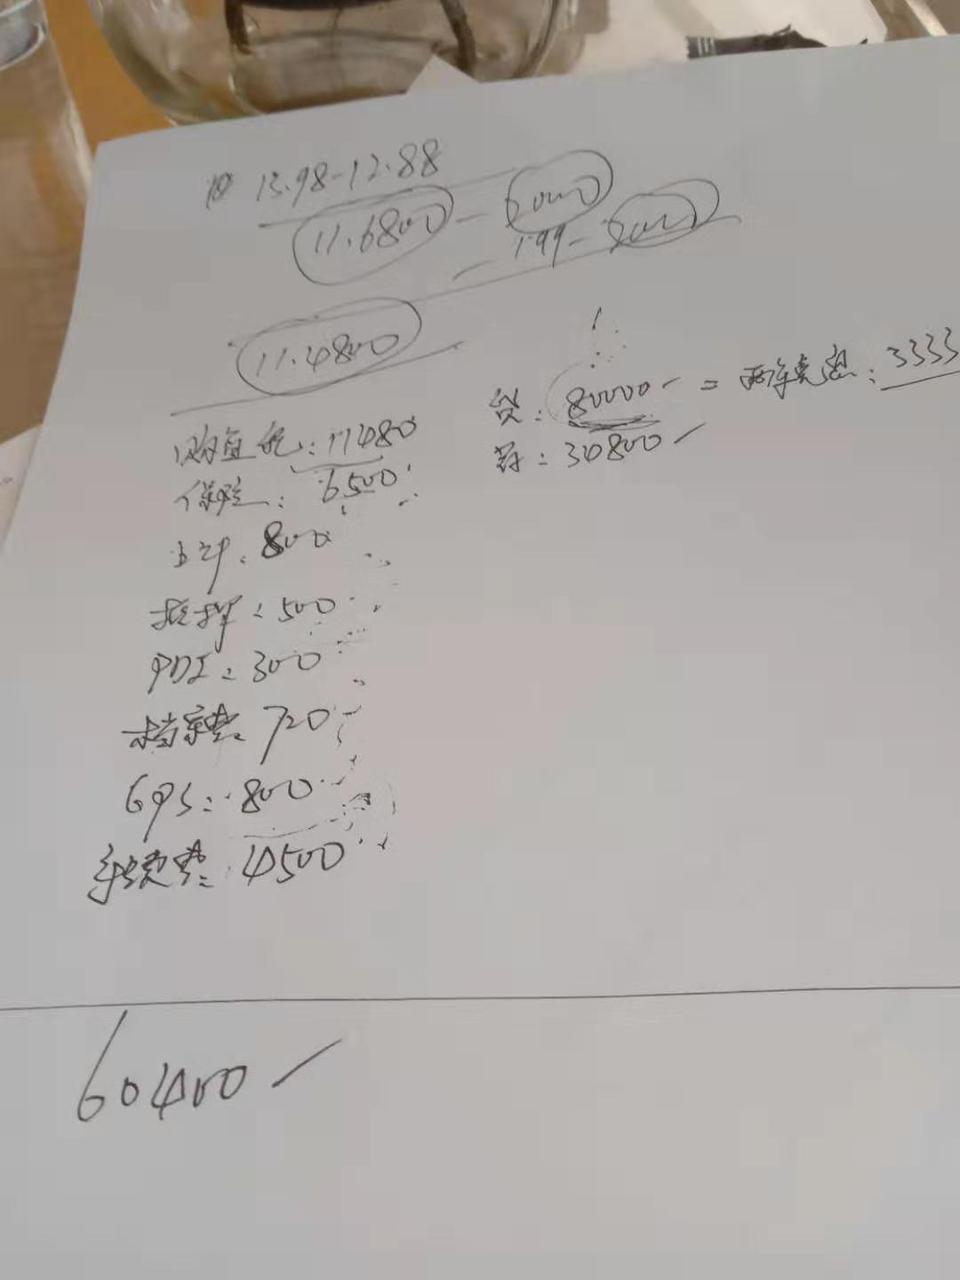 13.98-12.88
11.6800 - 6000
- 1.99 - 2000
11.4800
购置税:11480
保险:6500
上户:800
抵押:500
PDI:300
档案费:720
GPS:800
手续费:4500
贷:80000 = 两年免息:3333
首:34800
60400